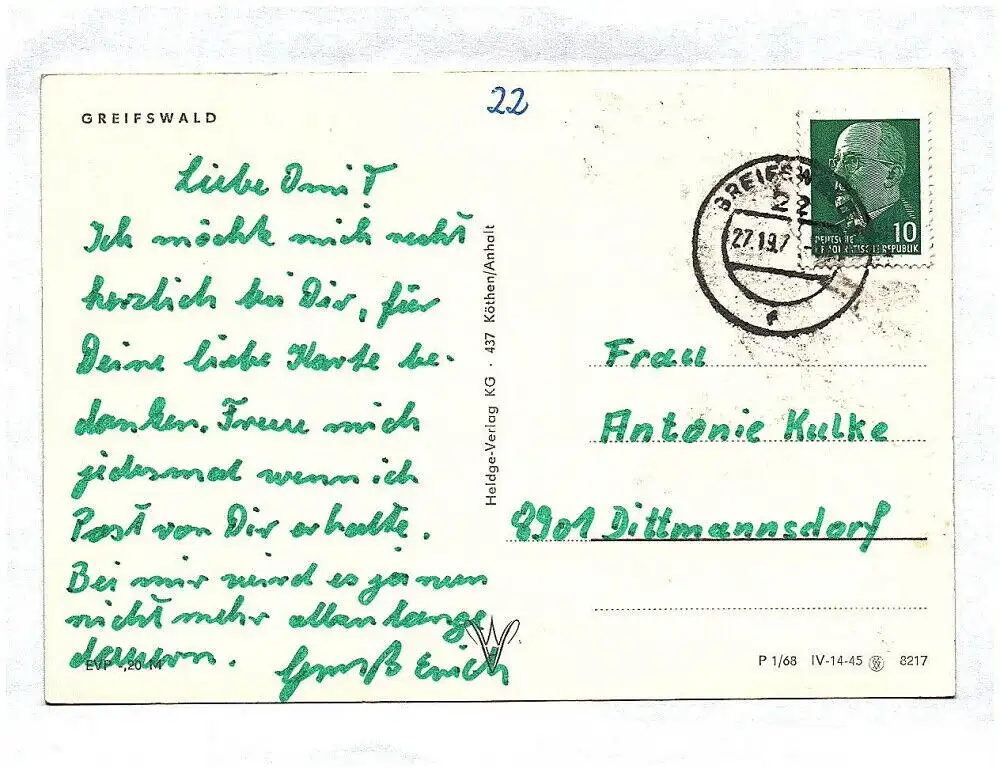 22
GREIFSWALD
Liebe Omi!
Ich möchte mich recht
herzlich bei Dir, für
Deine liebe Karte be-
danken. Freue mich
jedesmal wenn ich
Post von Dir erhalte.
Bei mir wird es ja nun
nicht mehr allzu lange
dauern. Gruß Erich
EVP -,20 M
Heldge-Verlag KG · 437 Köthen/Anhalt
GREIFSW
22
27.1 9.7
f
10
DEUTSCHE
DEMOKRATISCHE REPUBLIK
Frau
Antonie Kulke
8901 Dittmannsdorf
P 1/68 IV-14-45 8217